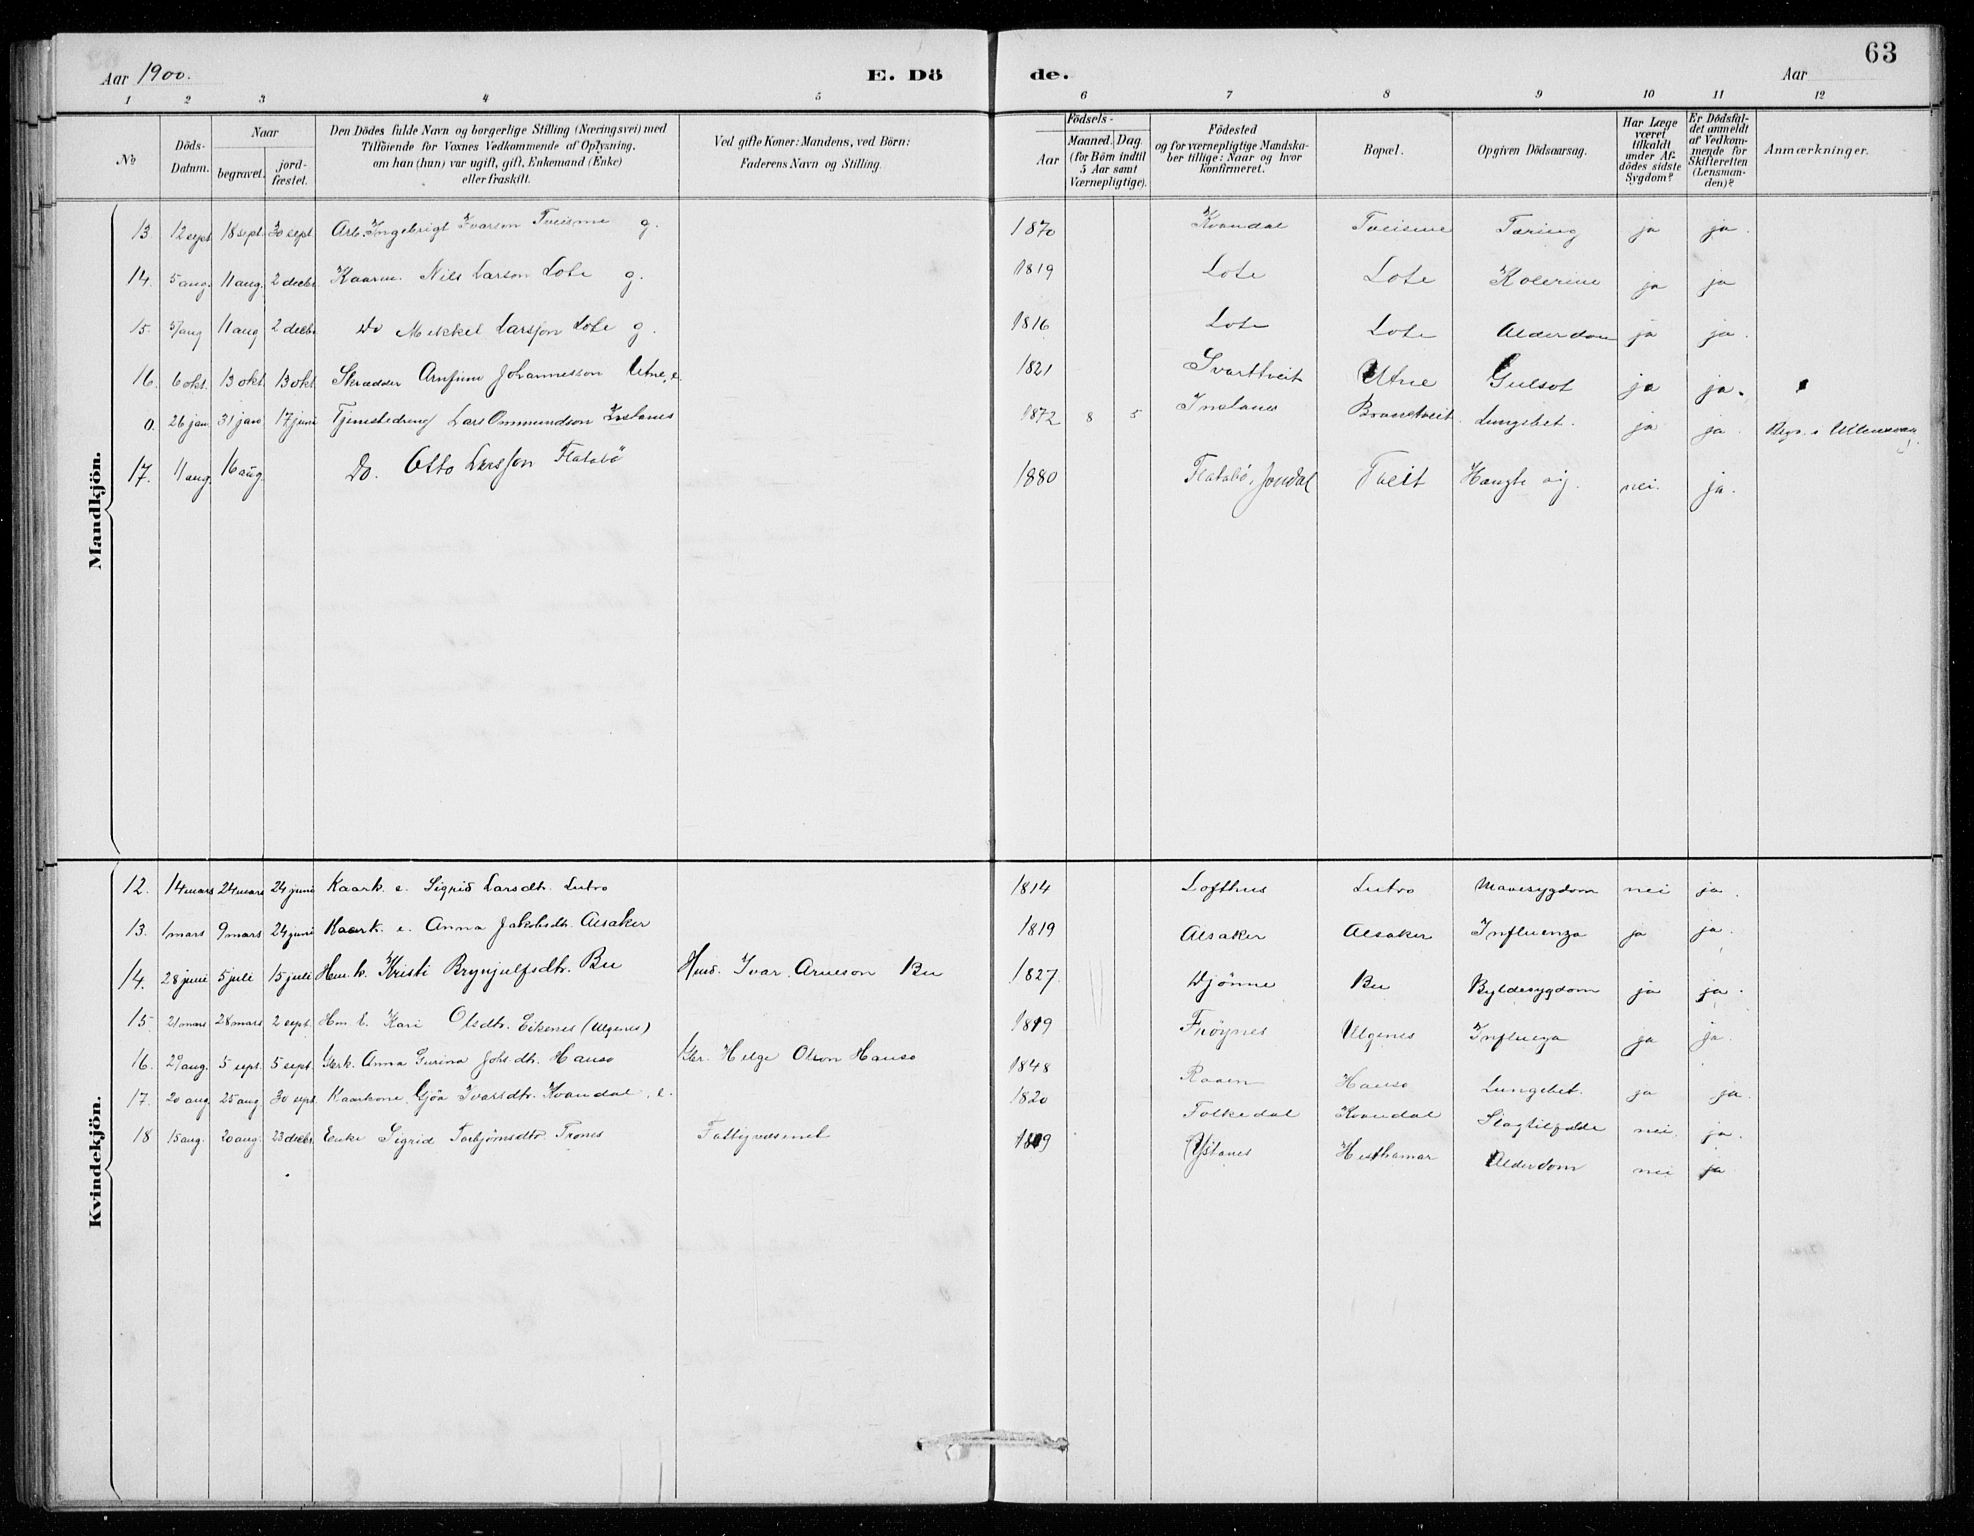 63
Aar 1900. E. Dö de. Aar
1 2 3 4 5 6 7 8 9 10 11 12
No Döds-Datum. Naar begravet. jord-fæstet. Den Dödes fulde Navn og borgerlige Stilling (Næringsvei) med Tilföiende for Voxnes Vedkommende af Oplysning, om han (hun) var ugift, gift, Enkemand (Enke) eller fraskilt. Ved gifte Koner: Mandens, ved Börn: Faderens Navn og Stilling. Aar Födsels- Maaned. Dag. (for Börn indtil 5 Aar samt Værnepligtige). Födested og for værnepligtige Mandskaber tillige: Naar og hvor konfirmeret. Bopæl. Opgiven Dödsaarsag. Har Læge været tilkaldt under Afdödes sidste Sygdom? Er Dödsfaldet anmeldt af Vedkommende for Skifteretten (Lensmanden)? Anmærkninger.
Mandkjön.
13 12 sept 18 sept. 30 sept Arb. Ingebrigt Ivarson Tveisme g. 1870 Kvandal Tveisme Tæring ja ja.
14. 5 aug. 11 aug. 2 decbr. Kaarm. Nils Larson Lote g. 1819 Lote Lote Kolerine ja ja
15. 5/aug 11 aug 2 decbr Do Mikkel Larsson Lote g. 1816 Lote Lote Alderdom ja ja.
16. 6 okt. 13 okt 13 okt. Skrædder Arnfinn Johannesson Utne, e. 1821 Svarttveit Utne Gulsot ja ja.
0. 26 jan. 31 jan 17 juni Tjenestedreng Lars Ommundson Instanes 1872 8 5 Instanes Lungebet. ja ja. Begr. i Ullensvang
17. 11 aug. 16 aug. Do. Otto Larsson Flatabö 1880 Flatabö, Jondal Tveit Hængte sig. nei. ja.
Kvindekjön.
12. 14 mars 24 mars 24 juni Kaark. e. Sigrid Larsdtr. Lutro 1814 Lofthus Lutro Mavesygdom nei ja.
13. 1 mars 9 mars 24 juni Kaark. e. Anna Jakobsdtr. Alsaker 1819 Alsaker Alsaker Influenza ja ja.
14. 28 juni 5 juli 15 juli Hmk. Kristi Brynjulfsdtr. Bu Hmd. Ivar Arneson Bu 1827. Djönne Bu Byldesygdom ja ja.
15 21 mars 28 mars 2 sept. Hm. E. Kari Olsdtr. Eikenes (Ulgenes) 1819 Fröynes Ulgenes Influenza ja ja.
16. 29 aug. 5 sept. 5 sept. Gbrk. Anna Gurina Johs.dtr. Hauso Gbr. Helge Olson Hauso 1848 Raaen Hauso Lungebet. ja ja.
17. 20 aug 25 aug 30 sept. Kaarkone Gjöa Ivarsdtr. Kvandal, e. 1820 Folkedal Kvandal Slagtilfælde nei. ja.
18 15 aug. 20 aug. 23 decbr. Enke Sigrid Torbjörnsdtr. Trones Fattigvæsenet Ystanes Hesthamar Alderdom nei ja